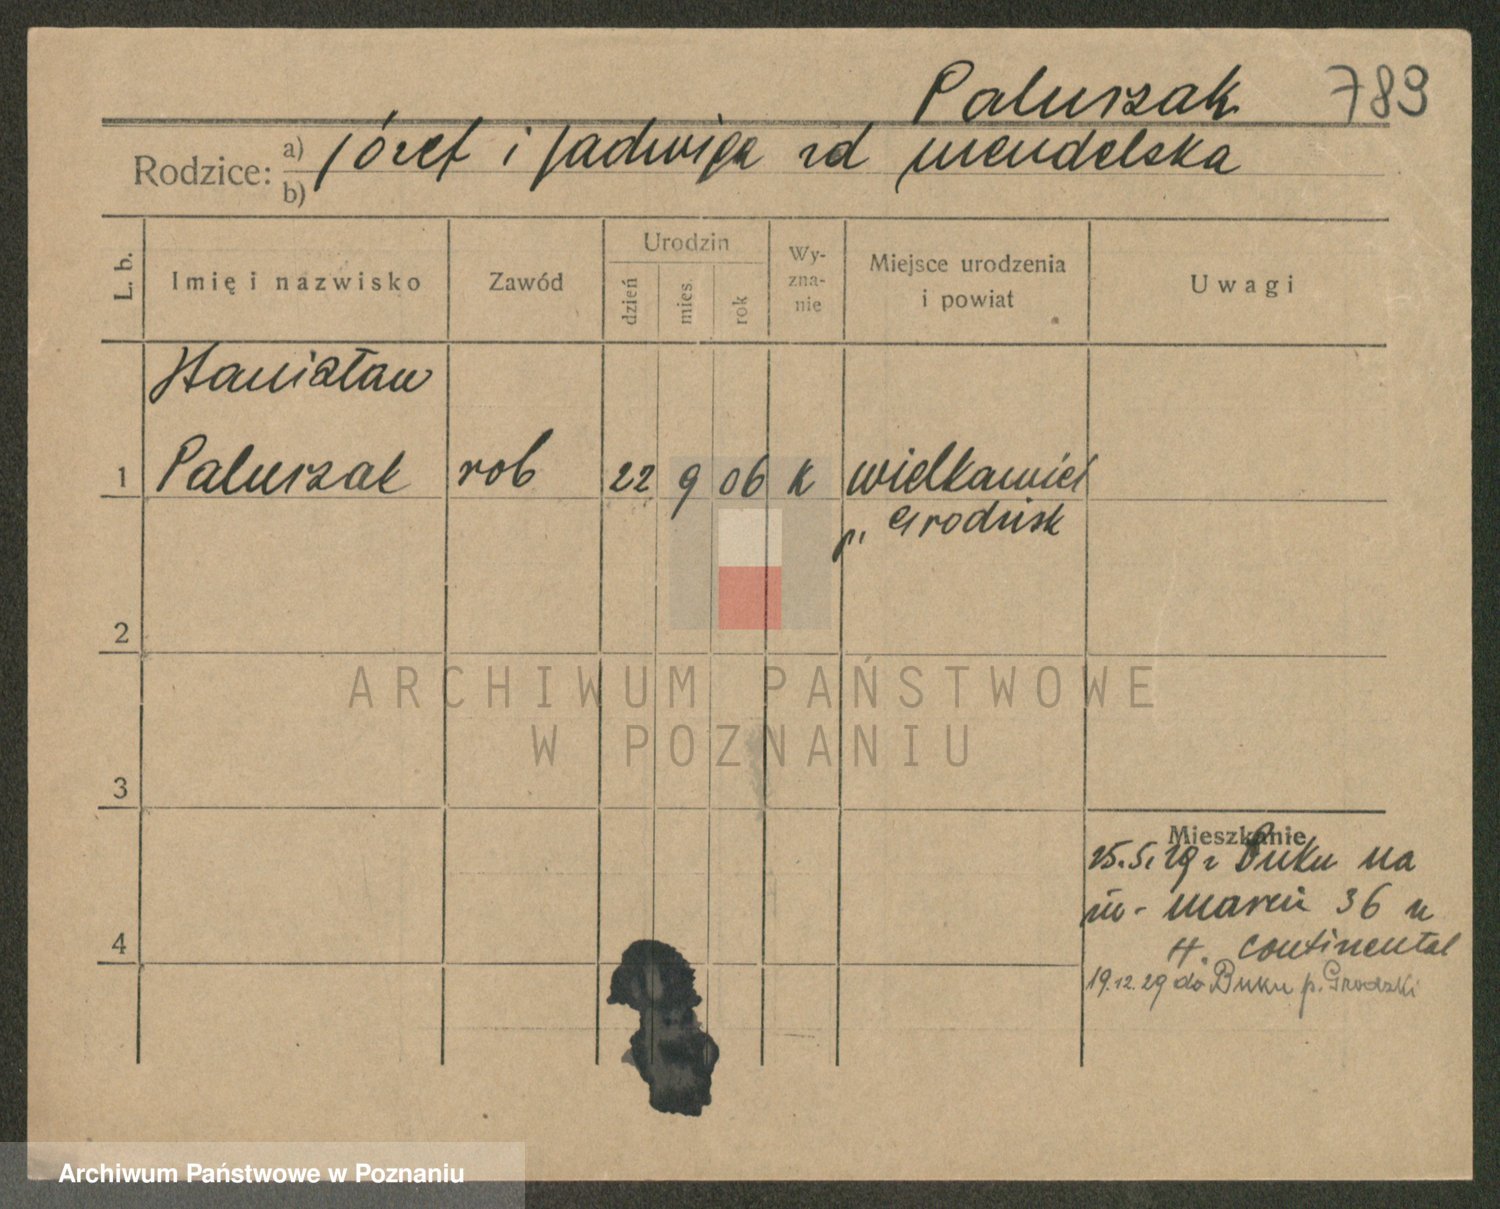 Paluszak 789
Rodzice: a) Józef i Jadwiga zd Mendelska
b)
L. b. Imię i nazwisko Zawód Urodzin dzień mies. rok Wy-zna-nie Miejsce urodzenia i powiat Uwagi
Stanisław
1 Paluszak rob 22 9 06 K Wielkawieś
p. Grodzisk
2
3
4
Mieszkanie
25.5.29 z Buku na
Marcin 36 u
H. Continental
19.12.29 do Buku p. Grodzki
ARCHIWUM PAŃSTWOWE
W POZNANIU
Archiwum Państwowe w Poznaniu